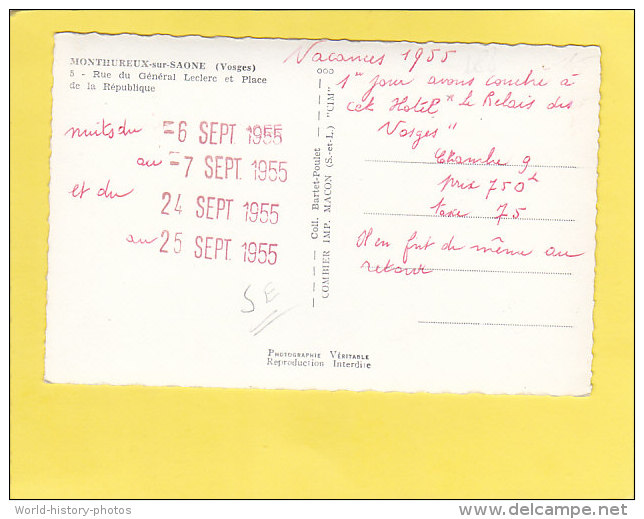 MONTHUREUX-sur-SAONE (Vosges)
5 - Rue du Général Leclerc et Place
de la République
nuits du =6 SEPT. 1955
au =7 SEPT. 1955
et du 24 SEPT. 1955
au 25 SEPT. 1955
SE
Coll. Bartet-Poulet
COMBIER IMP. MACON (S.-et-L.) "CIM"
Vacances 1955
1er jour avons couché à
cet Hotel "le Relais des
Vosges"
Chambre 9
prix 750
taxe 75
Il en fut de même au
retour
PHOTOGRAPHIE VÉRITABLE
Reproduction Interdite
World-history-photos
delcampe.net